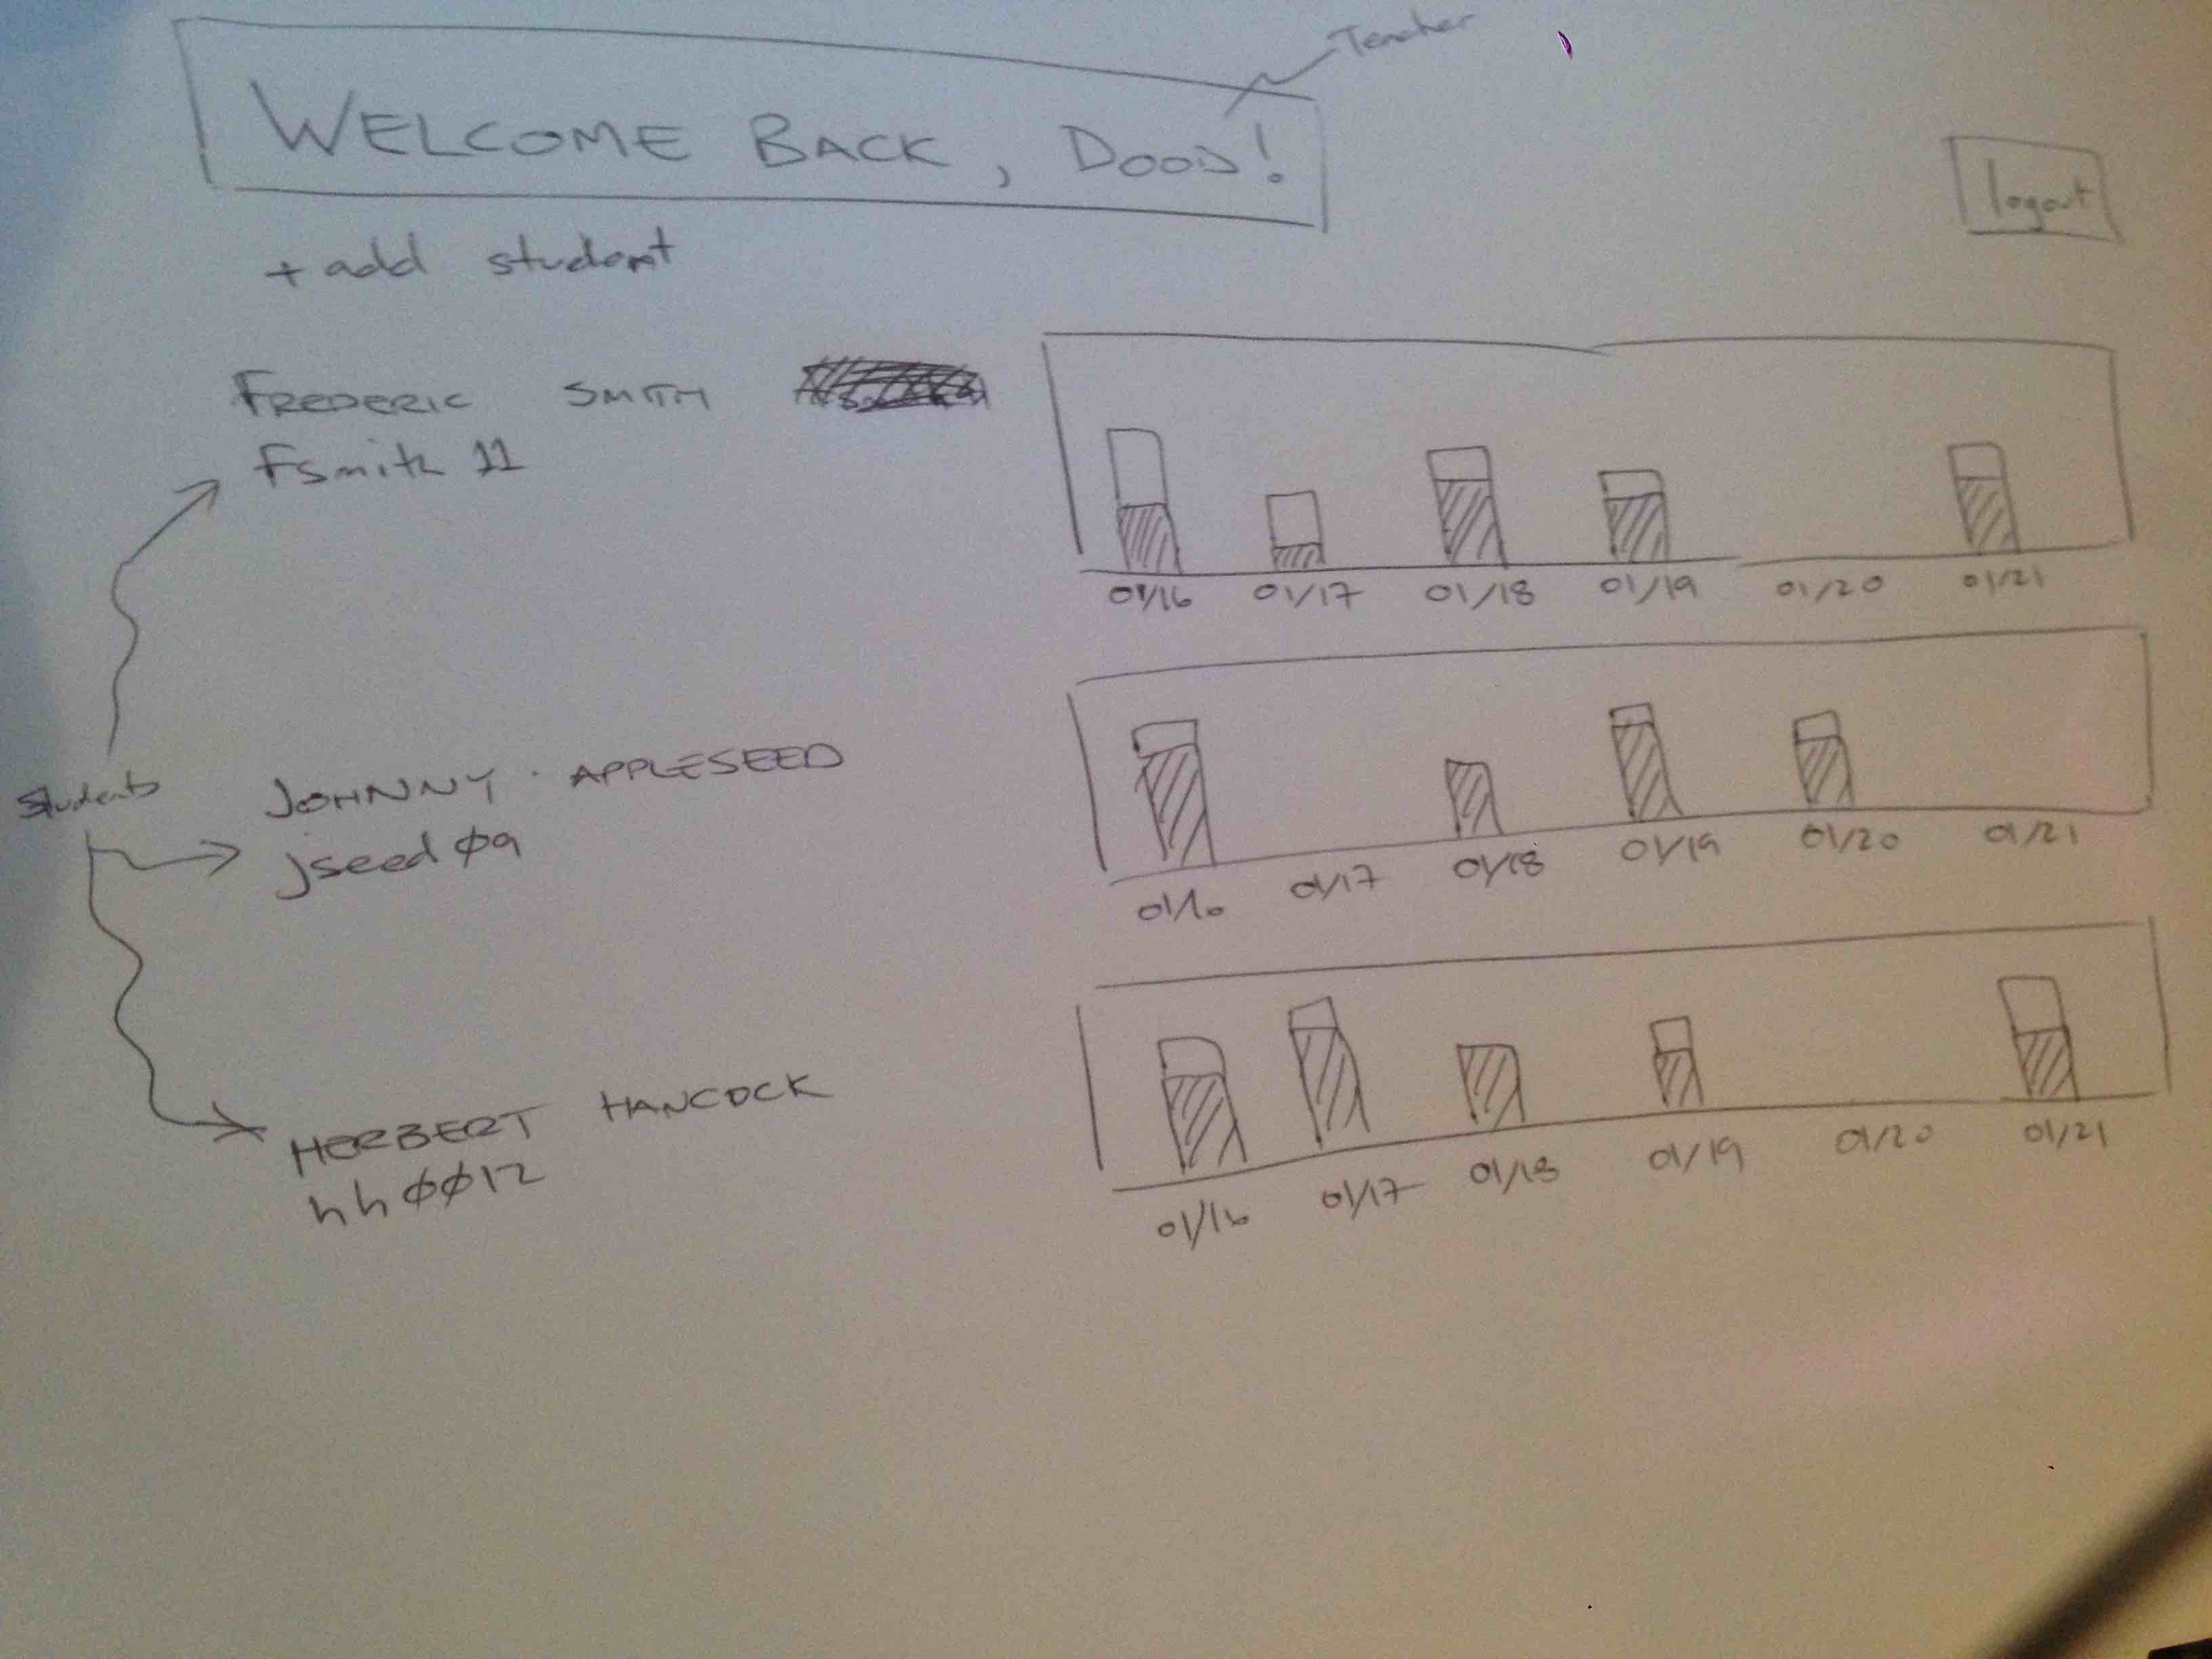 Teacher
WELCOME BACK, DOOD!
logout
+ add student
FREDERIC SMITH
fsmith 11
01/16 01/17 01/18 01/19 01/20 01/21
Students
JOHNNY APPLESEED
jseed09
01/16 01/17 01/18 01/19 01/20 01/21
HERBERT HANCOCK
hh0012
01/16 01/17 01/18 01/19 01/20 01/21